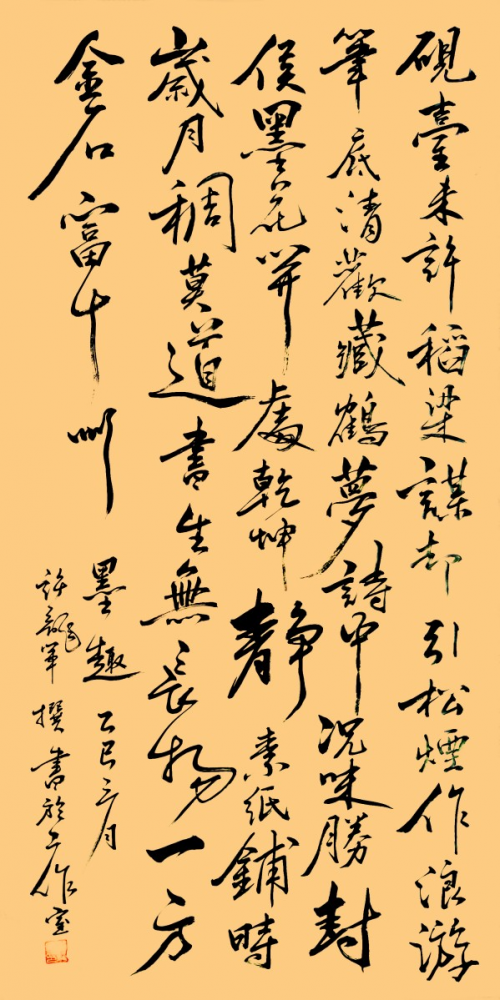 硯臺未許稻粱謀却引松煙作浪游
筆底清歡藏鶴夢詩中況味勝封
侯墨花開處乾坤靜素紙鋪時
歲月稠莫道書生無長物一方
金石富十州
墨趣 乙巳三月
許龍軍撰書於工作室